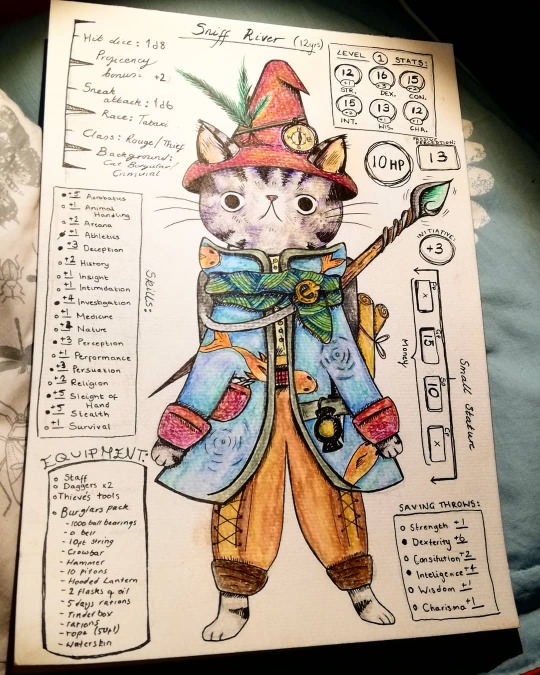 Sniff River (12yrs)
Hit dice: 1d8
Proficency
bonus: +2
Sneak
attack: 1d6
Race: Tabaxi
Class: Rouge/Thief
Background:
Cat Burgular/
Criminal
LEVEL 1 STATS:
12 16 15
+1 +3 +2
STR. DEX. CON.
15 13 12
+2 +1 +1
INT. WIS. CHA.
10 HP
PASSIVE
PERCEPTION:
13
INITIATIVE:
+3
x
15
10
x
Money
Small Stature
Skills:
+5 Acrobatics
+1 Animal
Handling
+2 Arcana
+1 Athletics
+3 Deception
+2 History
+1 Insight
+1 Intimidation
+4 Investigation
+1 Medicine
Nature
+3 Perception
+1 Performance
+3 Persuation
+2 Religion
+5 Sleight of
Hand
+5 Stealth
+1 Survival
EQUIPMENT:
Staff
Daggers x2
Thieve's tools
Burglars pack
- 1000 ball bearings
- a bell
- 10ft string
- Crowbar
- Hammer
- 10 pitons
- Hooded Lantern
- 2 flasks of oil
- 5 days rations
- Tinderbox
- rations
- rope (50ft)
- Waterskin
SAVING THROWS:
Strength +1
Dexterity +5
Constitution +2
Inteligence +4
Wisdom +1
Charisma +1